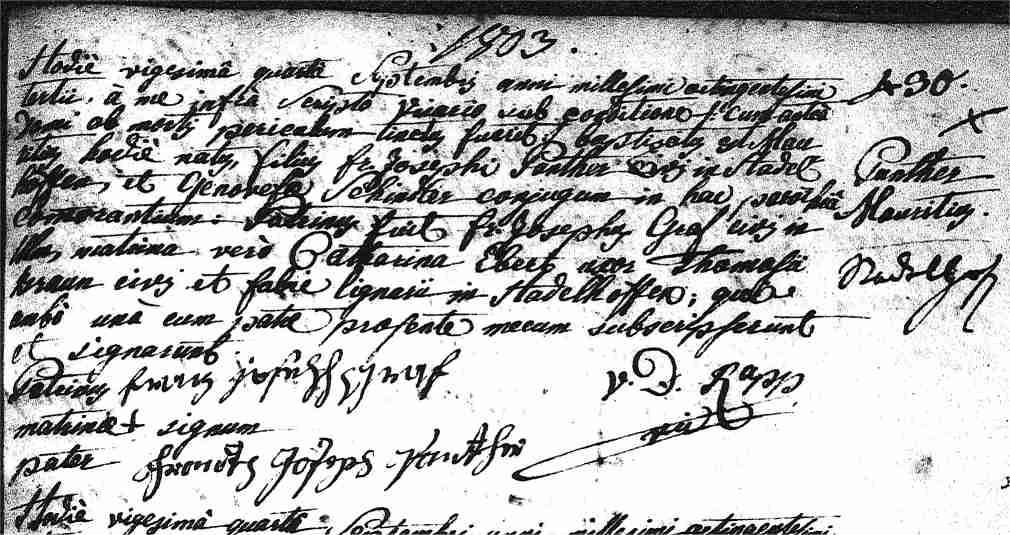 1803.
Hodiè vigesimâ quartâ Septembris anni millesimi octingentesimi
tertii. à me infrà scripto vicario sub conditione /: cum antea
domi ob mortis periculum tinctus fuerit, baptisatus est Mau
ritius hodiè natus filius fr. Josephi Panther civis in Stadel
hoffen, et Genovefa Schindler conjugum in hac parochiâ
comorantium: Patrinus fuit fr. Josephus Graf civis in
Ulm, matrina verò Catharina Ebert uxor Thomasii
braun civis et fabri lignarii in Stadelhoffen; qui
ambo unà cum patre praesente mecum subscripserunt
et signarunt
patrinus frantz joseph graf
matrinae + signum
pater frantz Joseph Panther
v. D. Rapp
vic
430.
+
Panther
Mauritius.
Stadelhof
Hodiè vigesimâ quartâ Septembris anni millesimi octingentesimi